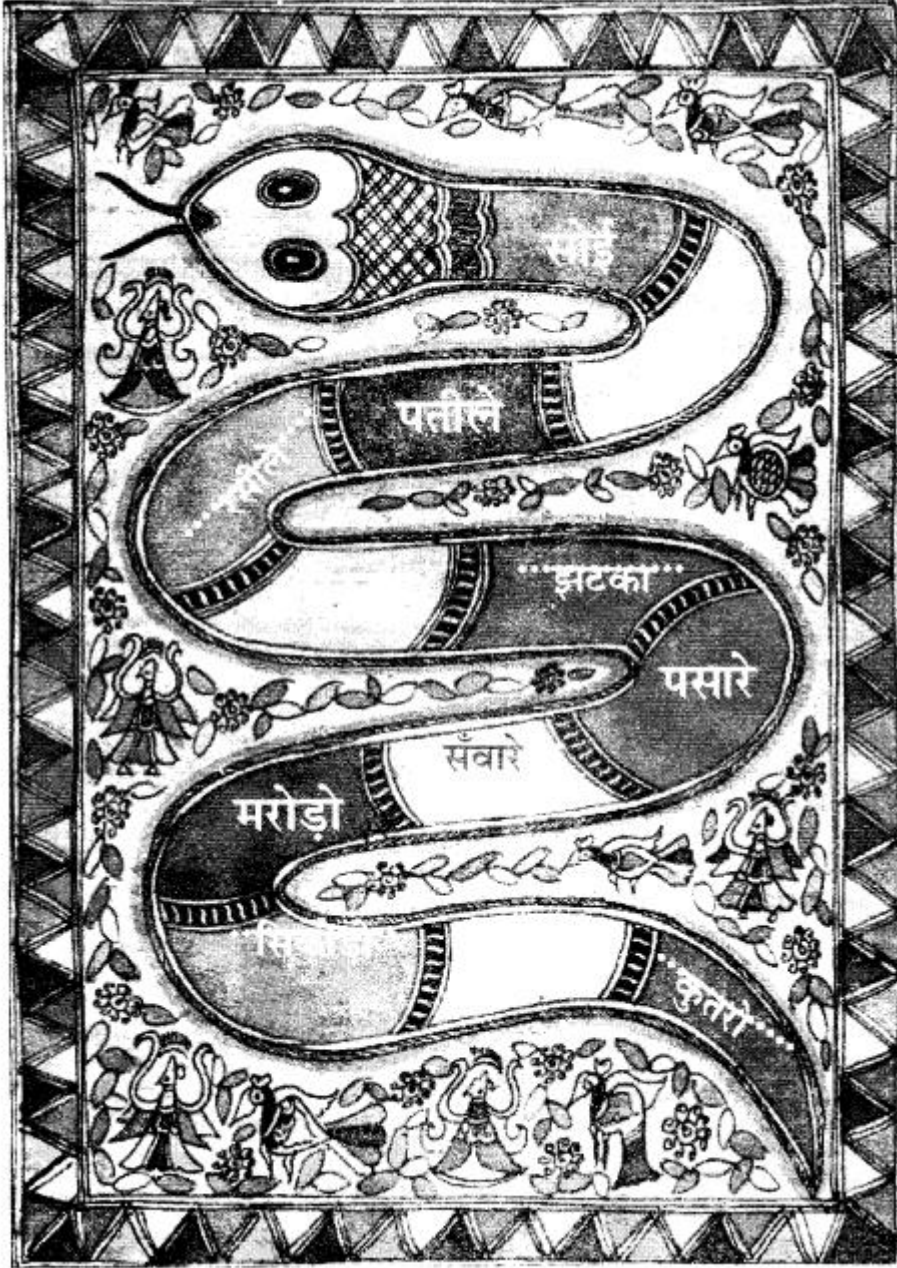 सोई
पतीले
...रसीले...
...झटका...
पसारे
सँवारे
मरोड़ो
...कुतरो...